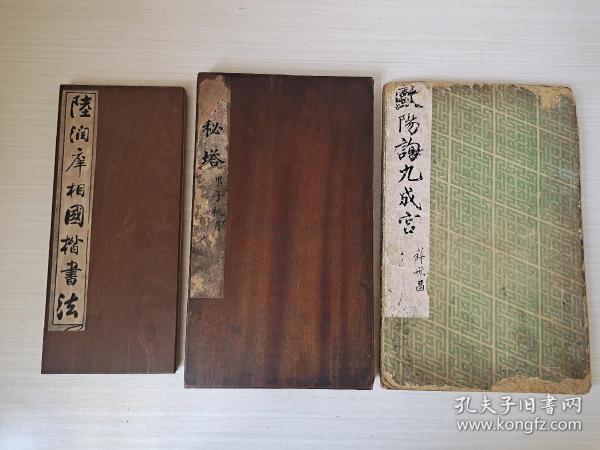 陸润庠相國楷書法
秘塔
甲子
歐陽詢九成宮
薛
昌
孔夫子旧書网
www.kongfz.com